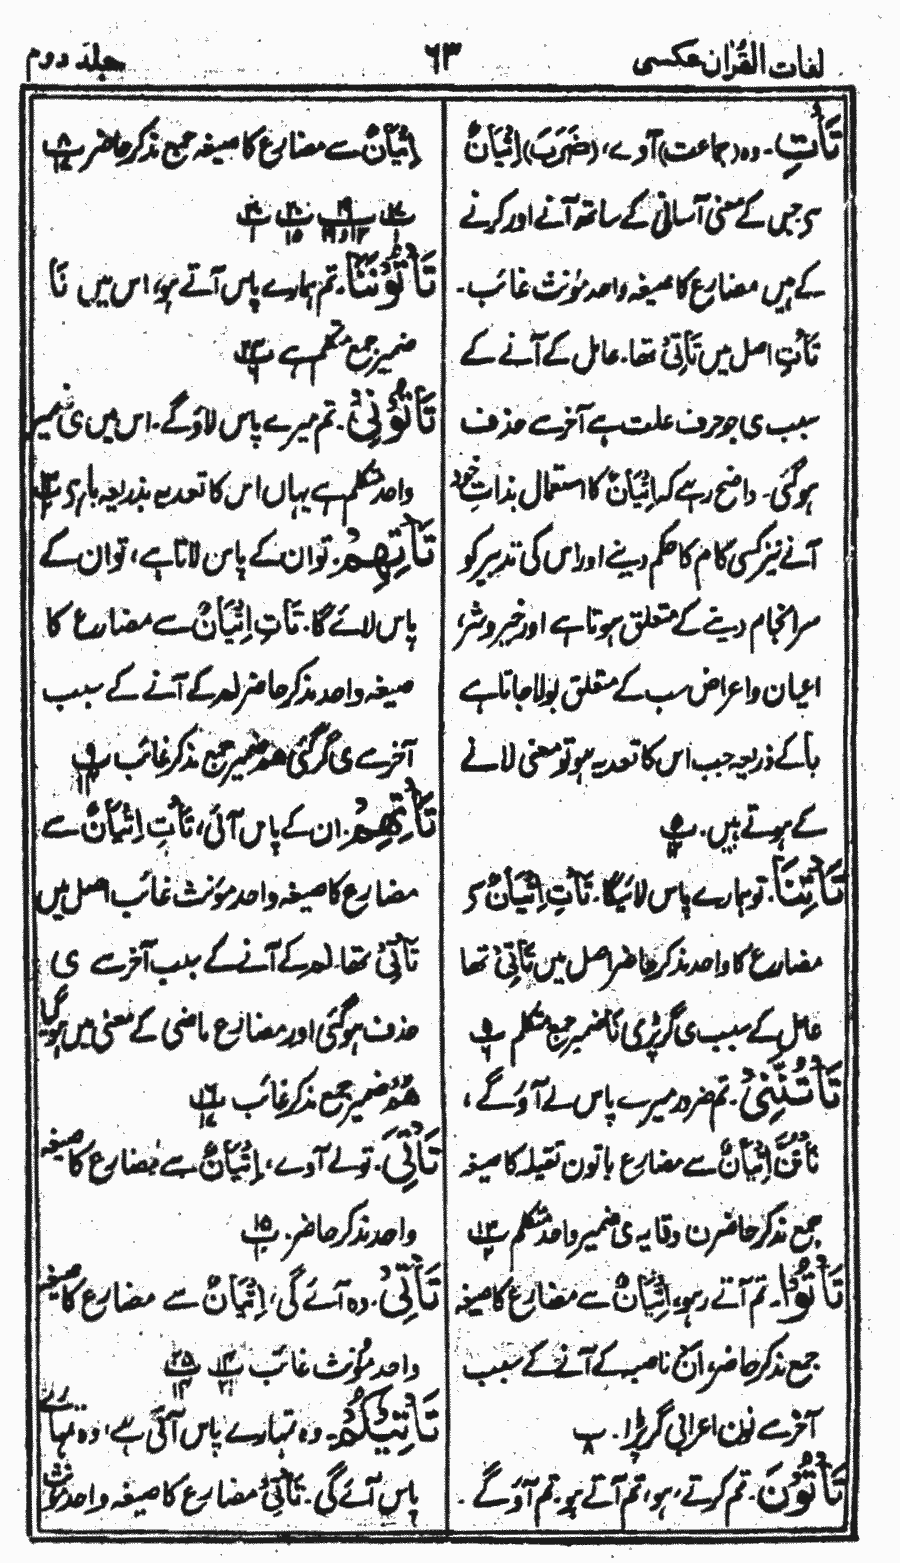 لغات القرآن عکسی
۶۳
جلد دوم
تَأْتِ۔ وہ (جماعت) آوے، (ضَرَبَ) اِتْیَانٌ
جس کے معنی آسانی کے ساتھ آنے اور کرنے
کے ہیں مضارع کا صیغہ واحد مؤنث غائب۔
تَأْتِ اصل میں تَأْتِیْ تھا۔ عامل کے آنے نے کے
سبب ی جو حرف علت ہے آخر سے حذف
ہوگئی۔ واضح رہے کہ اِتْیَانٌ کا استعمال بذات خود
آنے نیز کسی کام کا حکم دینے اور اس کی تدبیر کو
سرانجام دینے کے متعلق ہوتا ہے اور خیر و شر،
اعیان و اعراض سب کے متعلق بولا جاتا ہے
با کے ذریعہ جب اس کا تعدیہ ہو تو معنی لانے
کے ہوتے ہیں۔
تَأْتِنَا۔ تو ہمارے پاس لائیگا۔ تَأْتِ اِتْیَانٌ کر
مضارع کا واحد مذکر حاضر اصل میں تَأْتِیْ تھا
عامل کے سبب ی گر پڑی نَا ضمیر جمع متکلم
تَأْتُنَّنِیْ۔ تم ضرور میرے پاس لے آؤ گے،
تَأْتُنَّ اِتْیَانٌ سے مضارع با نون ثقیلہ کا صیغہ
جمع مذکر حاضر ن وقایہ ی ضمیر واحد متکلم
تَأْتُوْا۔ تم آتے رہو، اِتْیَانٌ سے مضارع کا صیغہ
جمع مذکر حاضر، اَنْ ناصبہ کے آنے کے سبب
آخر سے نون اعرابی گر پڑا۔
تَأْتُوْنَ۔ تم کرتے ہو، تم آتے ہو۔ تم آؤ گے۔
اِتْیَانٌ سے مضارع کا صیغہ جمع مذکر حاضر
تَأْتُوْنَنَا۔ تم ہمارے پاس آتے ہو، اس میں نَا
ضمیر جمع متکلم ہے
تَأْتُوْنِیْ۔ تم میرے پاس لاؤ گے۔ اس میں ی ضمیر
واحد متکلم ہے یہاں اس کا تعدیہ بذریعہ با ہے
تَأْتِهِمْ۔ تو ان کے پاس لاتا ہے، تو ان کے
پاس لائے گا۔ تَأْتِ اِتْیَانٌ سے مضارع کا
صیغہ واحد مذکر حاضر لم کے آنے کے سبب
آخر سے ی گر گئی هم ضمیر جمع مذکر غائب
تَأْتِهِمْ۔ ان کے پاس آئی، تَأْتِ اِتْیَانٌ سے
مضارع کا صیغہ واحد مؤنث غائب اصل میں
تَأْتِیْ تھا۔ لم کے آنے کے سبب آخر سے ی
حذف ہوگئی اور مضارع ماضی کے معنی میں ہو گیا
هُمْ ضمیر جمع مذکر غائب
تَأْتِیَ۔ تو لے آوے، اِتْیَانٌ سے مضارع کا صیغہ
واحد مذکر حاضر۔
تَأْتِیْ۔ وہ آئے گی، اِتْیَانٌ سے مضارع کا صیغہ
واحد مؤنث غائب
تَأْتِیْکُمْ۔ وہ تمہارے پاس آتی ہے، وہ تمہارے
پاس آئے گی۔ تَأْتِیْ مضارع کا صیغہ واحد مؤنث